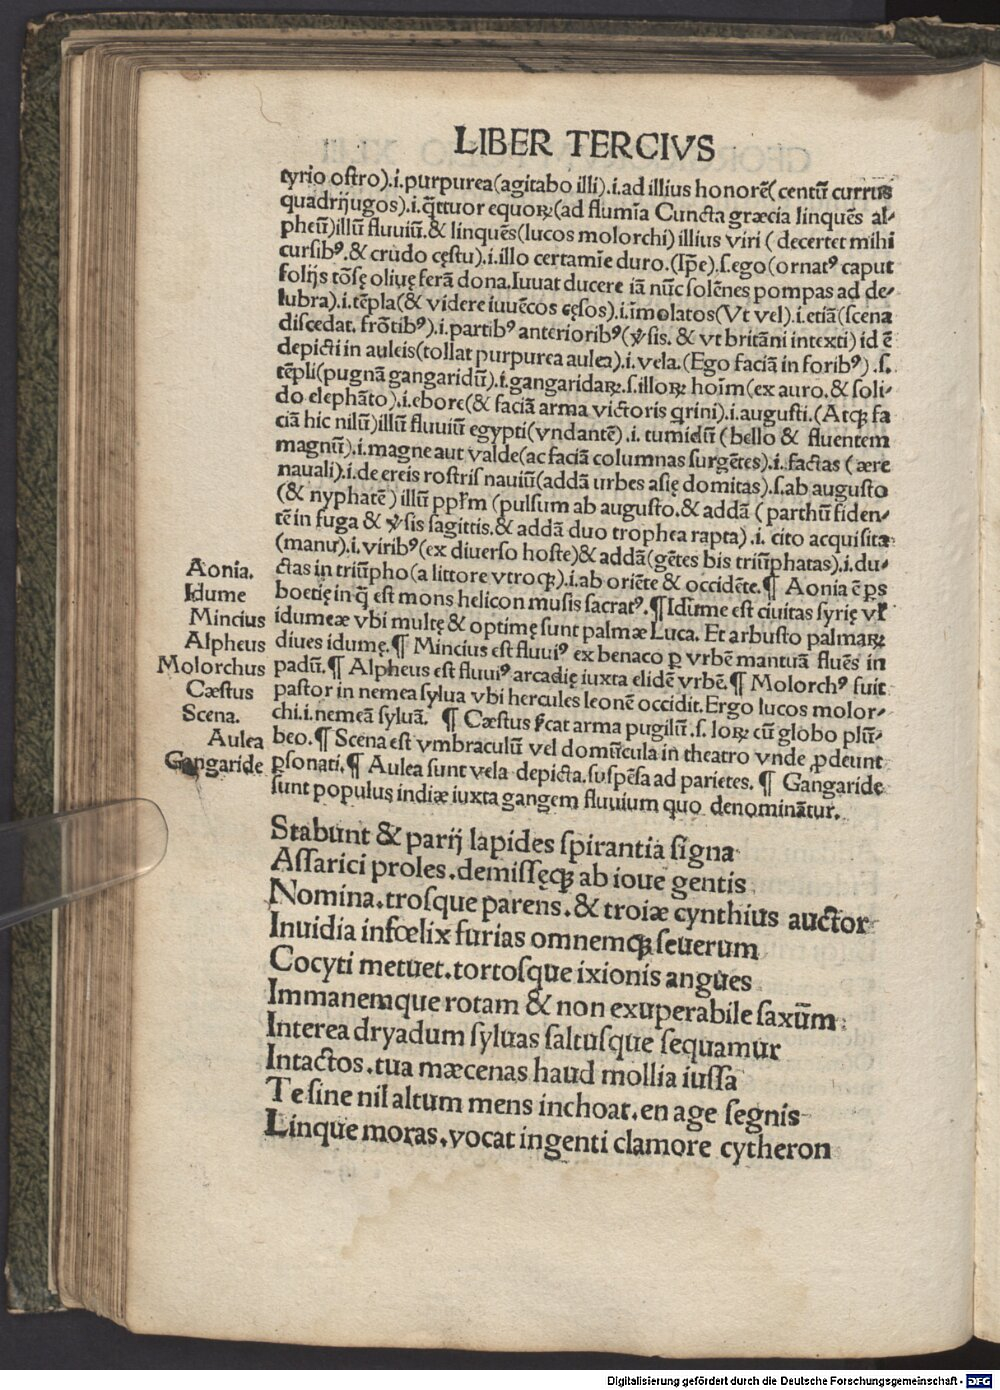 LIBER TERCIVS
tyrio oſtro).i.purpurea(agitabo illi).i.ad illius honorē(centū currus
quadrijugos).i.q̄ttuor equoꝝ(ad flumīa Cuncta græcia linquēs al-
pheū)illū fluuiū.& linquēs(lucos molorchi) illius viri ( decertet mihi
curſibꝰ.& crudo cęſtu).i.illo certamīe duro.(Ip̄e).ſ.ego(ornatꝰ caput
folijs tōſę oliuę ferā dona.Iuuat ducere iā nūc ſolēnes pompas ad de-
lubra).i.tēpla(& videre iuuēcos cęſos).i.īmolatos(Vt vel).i.etiā(ſcena
diſcedat. frōtibꝰ).i.partibꝰ anterioribꝰ(v̓ſis. & vt britāni intexti) id ē
depicti in auleis(tollat purpurea aulea).i.vela.(Ego faciā in foribꝰ) .ſ.
tēpli(pugnā gangaridū).i.gangaridaꝝ.ſ.illoꝝ hoīm(ex auro.& ſoli-
do elephāto).i.ebore(& faciā arma victoris qrini).i.auguſti.(Atqꝫ fa
ciā hic nilū)illū fluuiū egypti(vndantē).i. tumidū (bello & fluentem
magnū).i.magne aut valde(ac faciā columnas ſurgētes).i.factas (ære
nauali).i.de ereis roſtriſ nauiū(addā urbes aſię domitas).ſ.ab auguſto
(& nyphatē) illū ppl̄m (pulſum ab auguſto.& addā ( parthū fiden-
tē in fuga & v̓ſis ſagittis.& addā duo trophea rapta).i. cito acquiſita
(manu).i.viribꝰ(ex diuerſo hoſte)& addā(gētes bis triūphatas).i.du-
ctas in triūpho(a littore vtroqꝫ).i.ab oriēte & occidēte.¶ Aonia ē ps
Aonia.
boetię in q̄ eſt mons helicon muſis ſacratꝰ.¶Idume eſt ciuitas ſyrię vl̓
Idume
idumeæ vbi multę & optimę ſunt palmæ Luca. Et arbuſto palmaꝝ
Mincius
diues idumę.¶ Mincius eſt fluuiꝰ ex benaco ꝑ vrbē mantuā fluēs in
Alpheus
padū.¶ Alpheus eſt fluuiꝰ arcadię iuxta elidē vrbē.¶ Molorchꝰ fuit
Molorchus
paſtor in nemea ſylua vbi hercules leonē occidit.Ergo lucos molor-
Cæſtus
chi.i.nemeā ſyluā. ¶ Cæſtus v̓cat arma pugilū.ſ. loꝝ cū globo plū-
Scena.
beo.¶ Scena eſt vmbraculū vel domūcula in theatro vnde ꝓdeunt
Aulea
ꝑſonati.¶ Aulea ſunt vela depicta.ſuſpēſa ad parietes.¶ Gangaride
Gangaride
ſunt populus indiæ iuxta gangem fluuium quo denominātur.
Stabunt & parij lapides ſpirantia ſigna
Aſſarici proles.demiſſęqꝫ ab ioue gentis
Nomina.troſque parens.& troiæ cynthius auctor
Inuidia infœlix furias omnemqꝫ ſeuerum
Cocyti metuet.tortoſque ixionis angues
Immanemque rotam & non exuperabile ſaxūm
Interea dryadum ſyluas ſaltuſque ſequamur
Intactos.tua mæcenas haud mollia iuſſa
Te ſine nil altum mens inchoat.en age ſegnis
Linque moras.vocat ingenti clamore cytheron
Digitalisierung gefördert durch die Deutsche Forschungsgemeinschaft - DFG